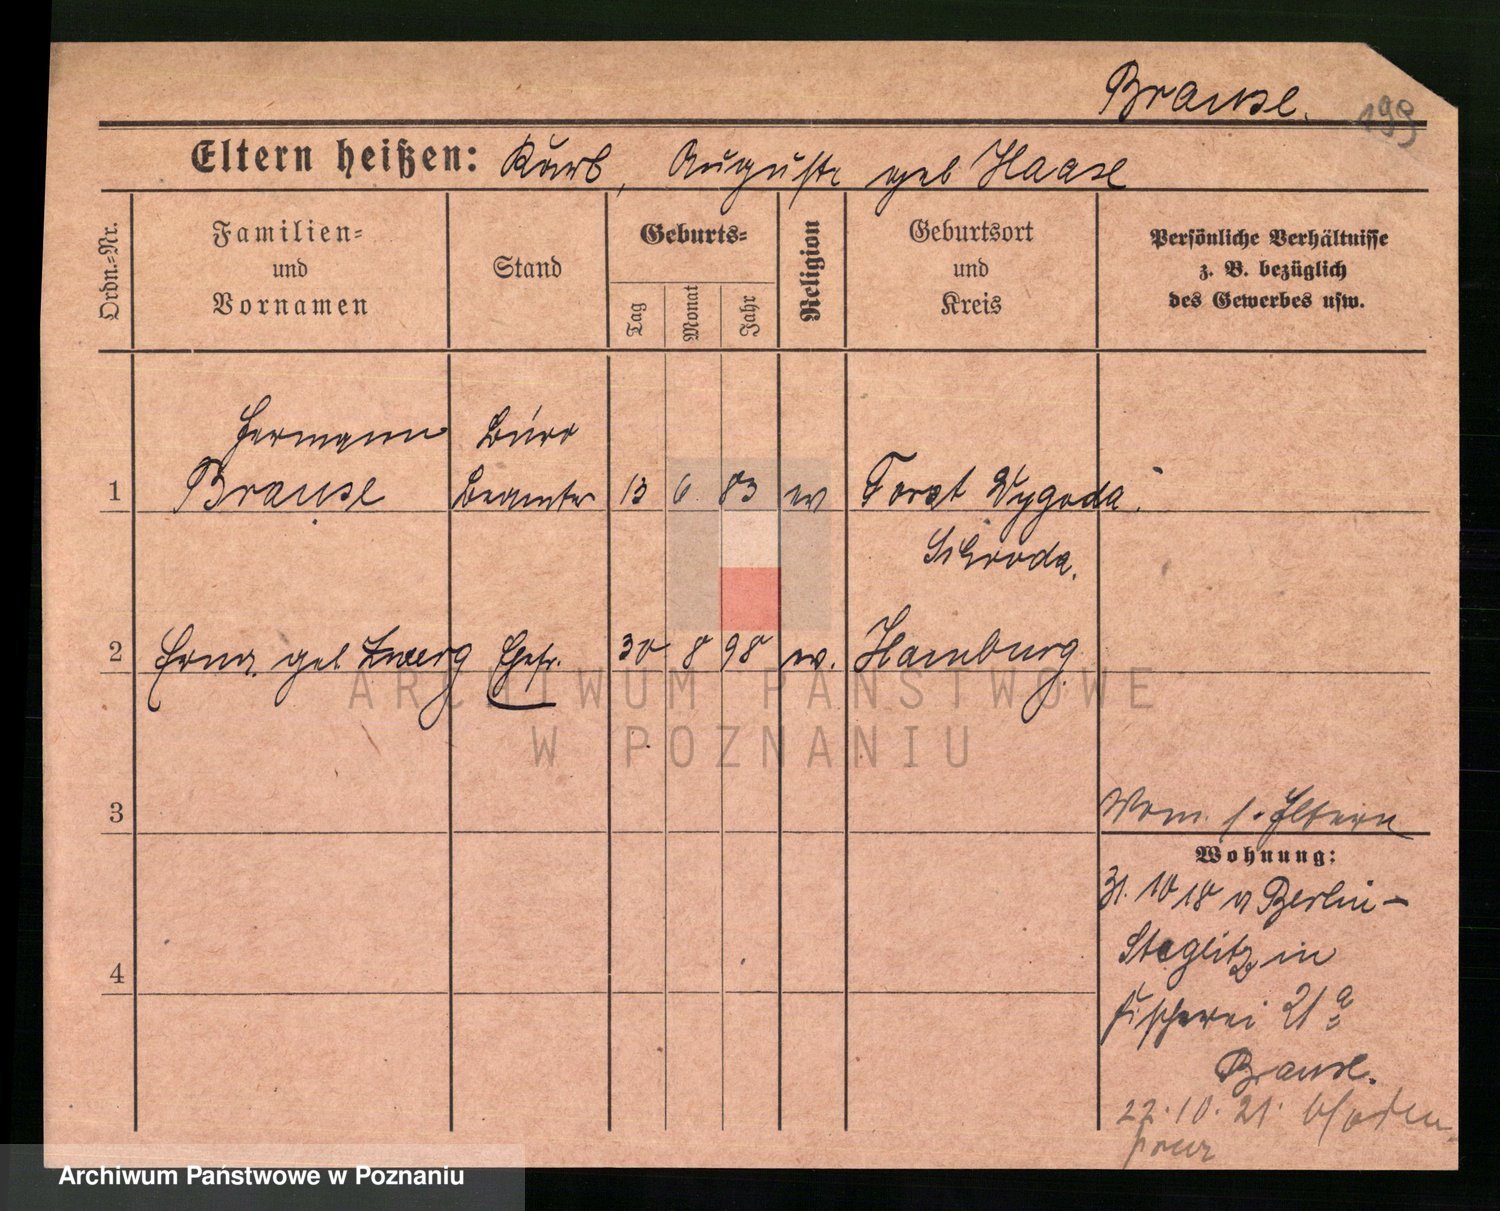 Brause.
199
Eltern heißen: Karl, Auguste geb Haase
Ordn.-Nr.
Familien-
und
Vornamen
Stand
Geburts-
Tag
Monat
Jahr
Religion
Geburtsort
und
Kreis
Persönliche Verhältnisse
z. B. bezüglich
des Gewerbes usw.
Hermann Büro
1 Brause Beamter 13 6. 83 ev Forst Wygoda.
Schroda.
2 Erna geb Zwerg Ehefr. 30 8 98 ev. Hamburg
ARCHIWUM PAŃSTWOWE
W POZNANIU
3
Wohn. s. Eltern
Wohnung:
31. 10 18 v Berlin-
Steglitz in
4
Fischerei 21 a
Brause.
22.10.21.
Archiwum Państwowe w Poznaniu